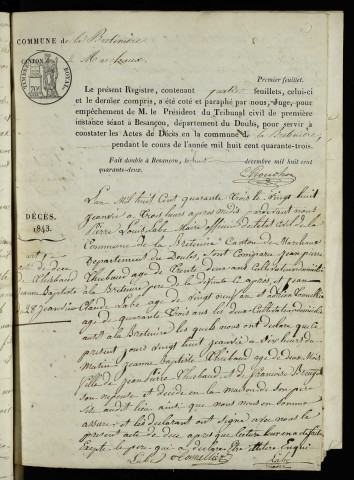 COMMUNE de la Bretenière
CANTON de Marchaux
TIMBRE ROYAL
Premier feuillet.
Le présent Registre, contenant quatre feuillets, celui-ci
et le dernier compris, a été coté et paraphé par nous, Juge, pour
empêchement de M. le Président du Tribunal civil de première
instance séant à Besançon, département du Doubs, pour servir à
constater les Actes de Décès en la commune de la Bretenière,
pendant le cours de l'année mil huit cent quarante-trois.
Fait double à Besançon, le huit décembre mil huit cent
quarante-deux.
DÉCÈS.
1843.
L'an mil huit cent quarante trois le vingt huit
janvier a trois heurs apres midi pardevant nous
Pierre Louis Labe Maire officier de l'etat civil de la
Commune de la Bretenière Canton de Marchaux
Departement du Doubs, sont Comparu jean pierre
Thiebaud age de trente deux ans Cultivateur
a la Bretenière pere de la defunte ci apres et jean
Claude Labe age de vingt neuf ans et
age de quarante trois ans les deux Cultivateurs
a la Bretenière les quels nous ont declare que ce
present jour vingt huit janvier a heurs du
Matin jeanne Baptiste Thiebaud age de deux Mois
fille de jean pierre Thiebaud et de francoise
son epouse et decede en la maison de son pere
sis audit lieu ainsi que nous nous en sommes
assure, et les declarant ont signe avec nous le
present acte de deces apres que lecture leur en a ete faite
Excepte le pere qui a declare
Labe
Labe